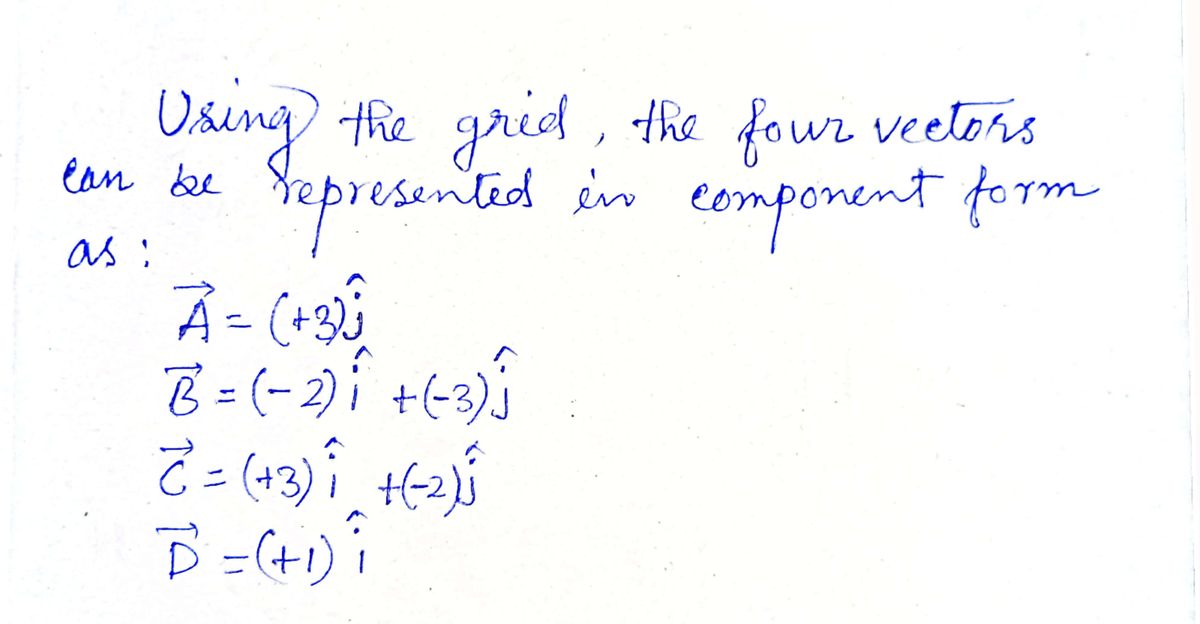 Using the grid, the four vectors
can be represented in component form
as :
A⃗ = (+3)ĵ
B⃗ = (-2) î +(-3)ĵ
C⃗ = (+3) î +(-2)ĵ
D⃗ = (+1) î